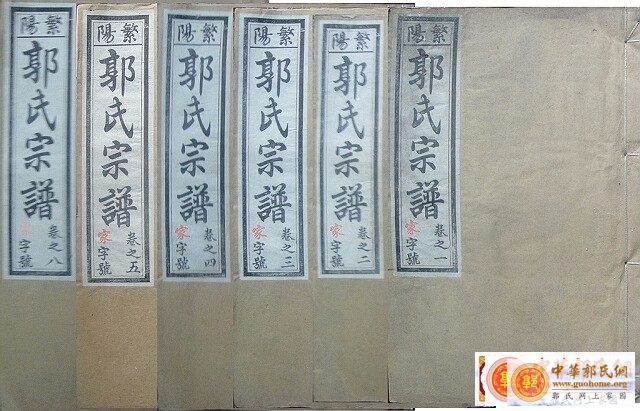 繁陽
郭氏宗譜
卷之一
家字號
繁陽
郭氏宗譜
卷之二
家字號
繁陽
郭氏宗譜
卷之三
家字號
繁陽
郭氏宗譜
卷之四
家字號
繁陽
郭氏宗譜
卷之五
家字號
繁陽
郭氏宗譜
卷之八
字號
中華郭氏網
www.guohome.org
郭氏网上家園